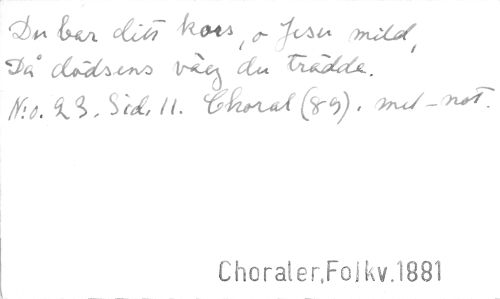 Du bar ditt kors, o Jesu mild,
Då dödsens väg du trädde.
N:o. 23. Sid. 11. Choral (89). mel-not.
Choraler,Folkv.1881